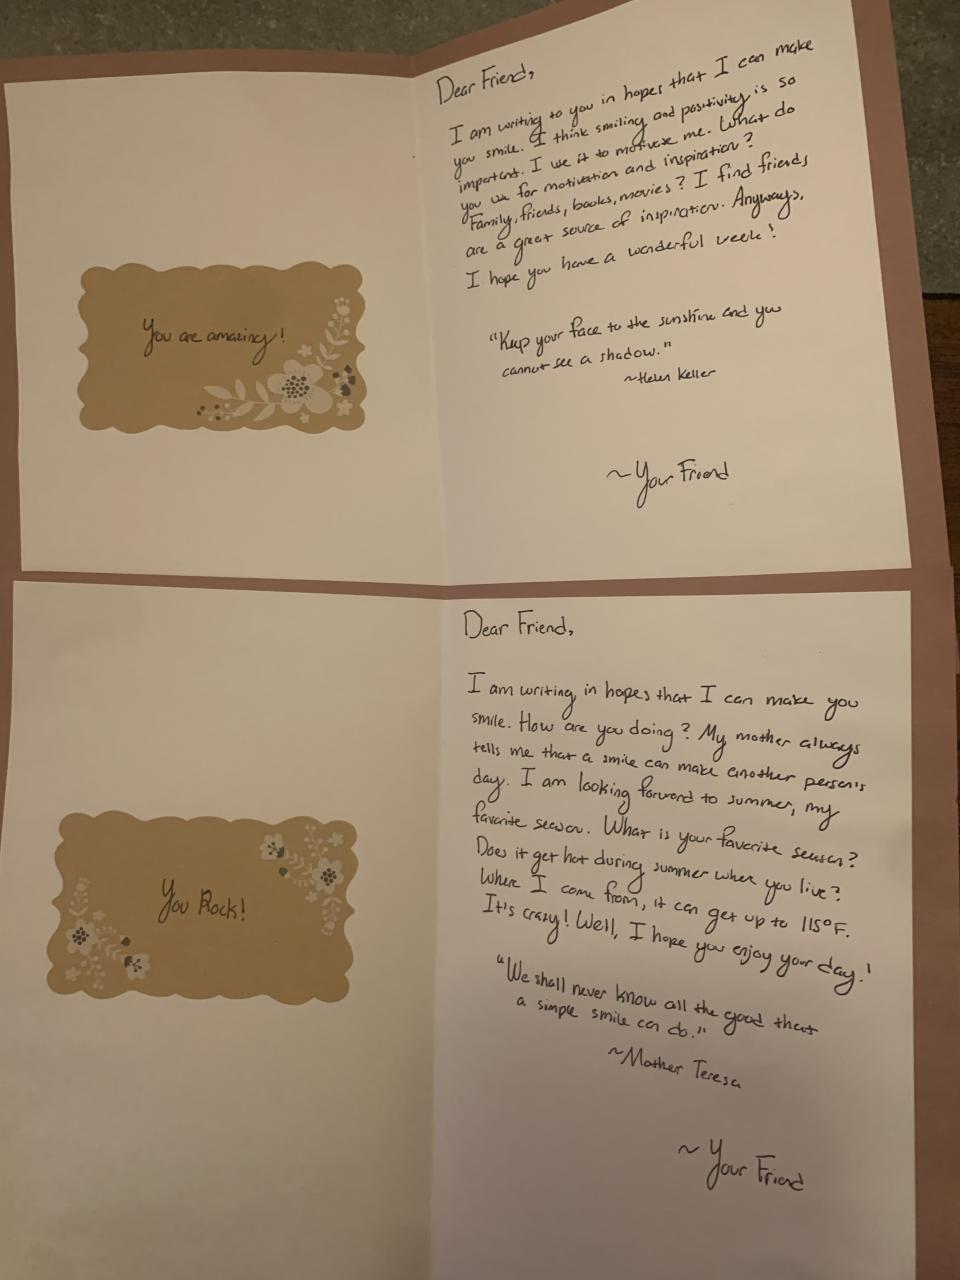 You are amazing!
Dear Friend,
I am writing to you in hopes that I can make
you smile. I think smiling and positivity is so
important. I use it to motivate me. What do
you use for motivation and inspiration?
Family, friends, books, movies? I find friends
are a great source of inspiration. Anyways,
I hope you have a wonderful week!
"Keep your face to the sunshine and you
cannot see a shadow."
~Helen Keller
~Your Friend
You Rock!
Dear Friend,
I am writing in hopes that I can make you
smile. How are you doing? My mother always
tells me that a smile can make another person's
day. I am looking forward to summer, my
favorite season. What is your favorite season?
Does it get hot during summer where you live?
Where I come from, it can get up to 115°F.
It's crazy! Well, I hope you enjoy your day!
"We shall never know all the good that
a simple smile can do."
~Mother Teresa
~Your Friend